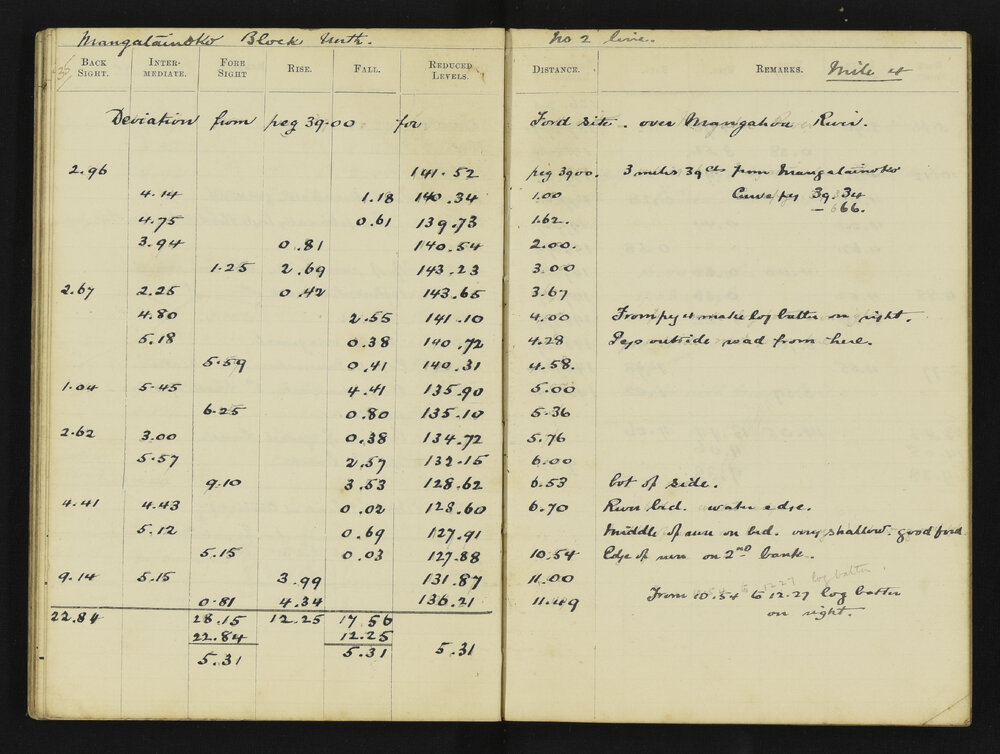 Mangatainoko Block North. No 2 line.
BACK SIGHT. INTER-MEDIATE. FORE SIGHT RISE. FALL. REDUCED LEVELS. DISTANCE. REMARKS. Mile 4
Deviation from peg 39.00 for Ford site. over Mangahoa River.
2.96 141.52 peg 3900. 3 miles 39 cts from Mangatainoko
4.14 1.18 140.34 1.00 Curve peg 39.34
4.75 0.61 139.73 1.62. – 666.
3.94 0.81 140.54 2.00.
1.25 2.69 143.23 3.00
2.67 2.25 0.42 143.65 3.67
4.80 2.55 141.10 4.00 From peg 4 make log batter on right.
5.18 0.38 140.72 4.28 Pegs outside road from here.
5.59 0.41 140.31 4.58.
1.04 5.45 4.41 135.90 5.00
6.25 0.80 135.10 5.36
2.62 3.00 0.38 134.72 5.76
5.57 2.57 132.15 6.00
9.10 3.53 128.62 6.53 bot of side.
4.41 4.43 0.02 128.60 6.70 River bed. water edge.
5.12 0.69 127.91 Middle of river on bed. very shallow. good ford
5.15 0.03 127.88 10.54 Edge of river on 2nd bank.
9.14 5.15 3.99 131.87 11.00
0.81 4.34 136.21 11.49 From 10.54 to 12.27 log batter
22.84 28.15 12.25 17.56 on right.
22.84 12.25
5.31 5.31 5.31